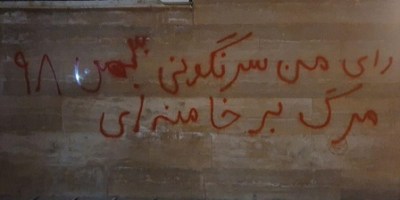 رای من سرنگونی ۳بهمن ۹۸
مرگ بر خامنه ای